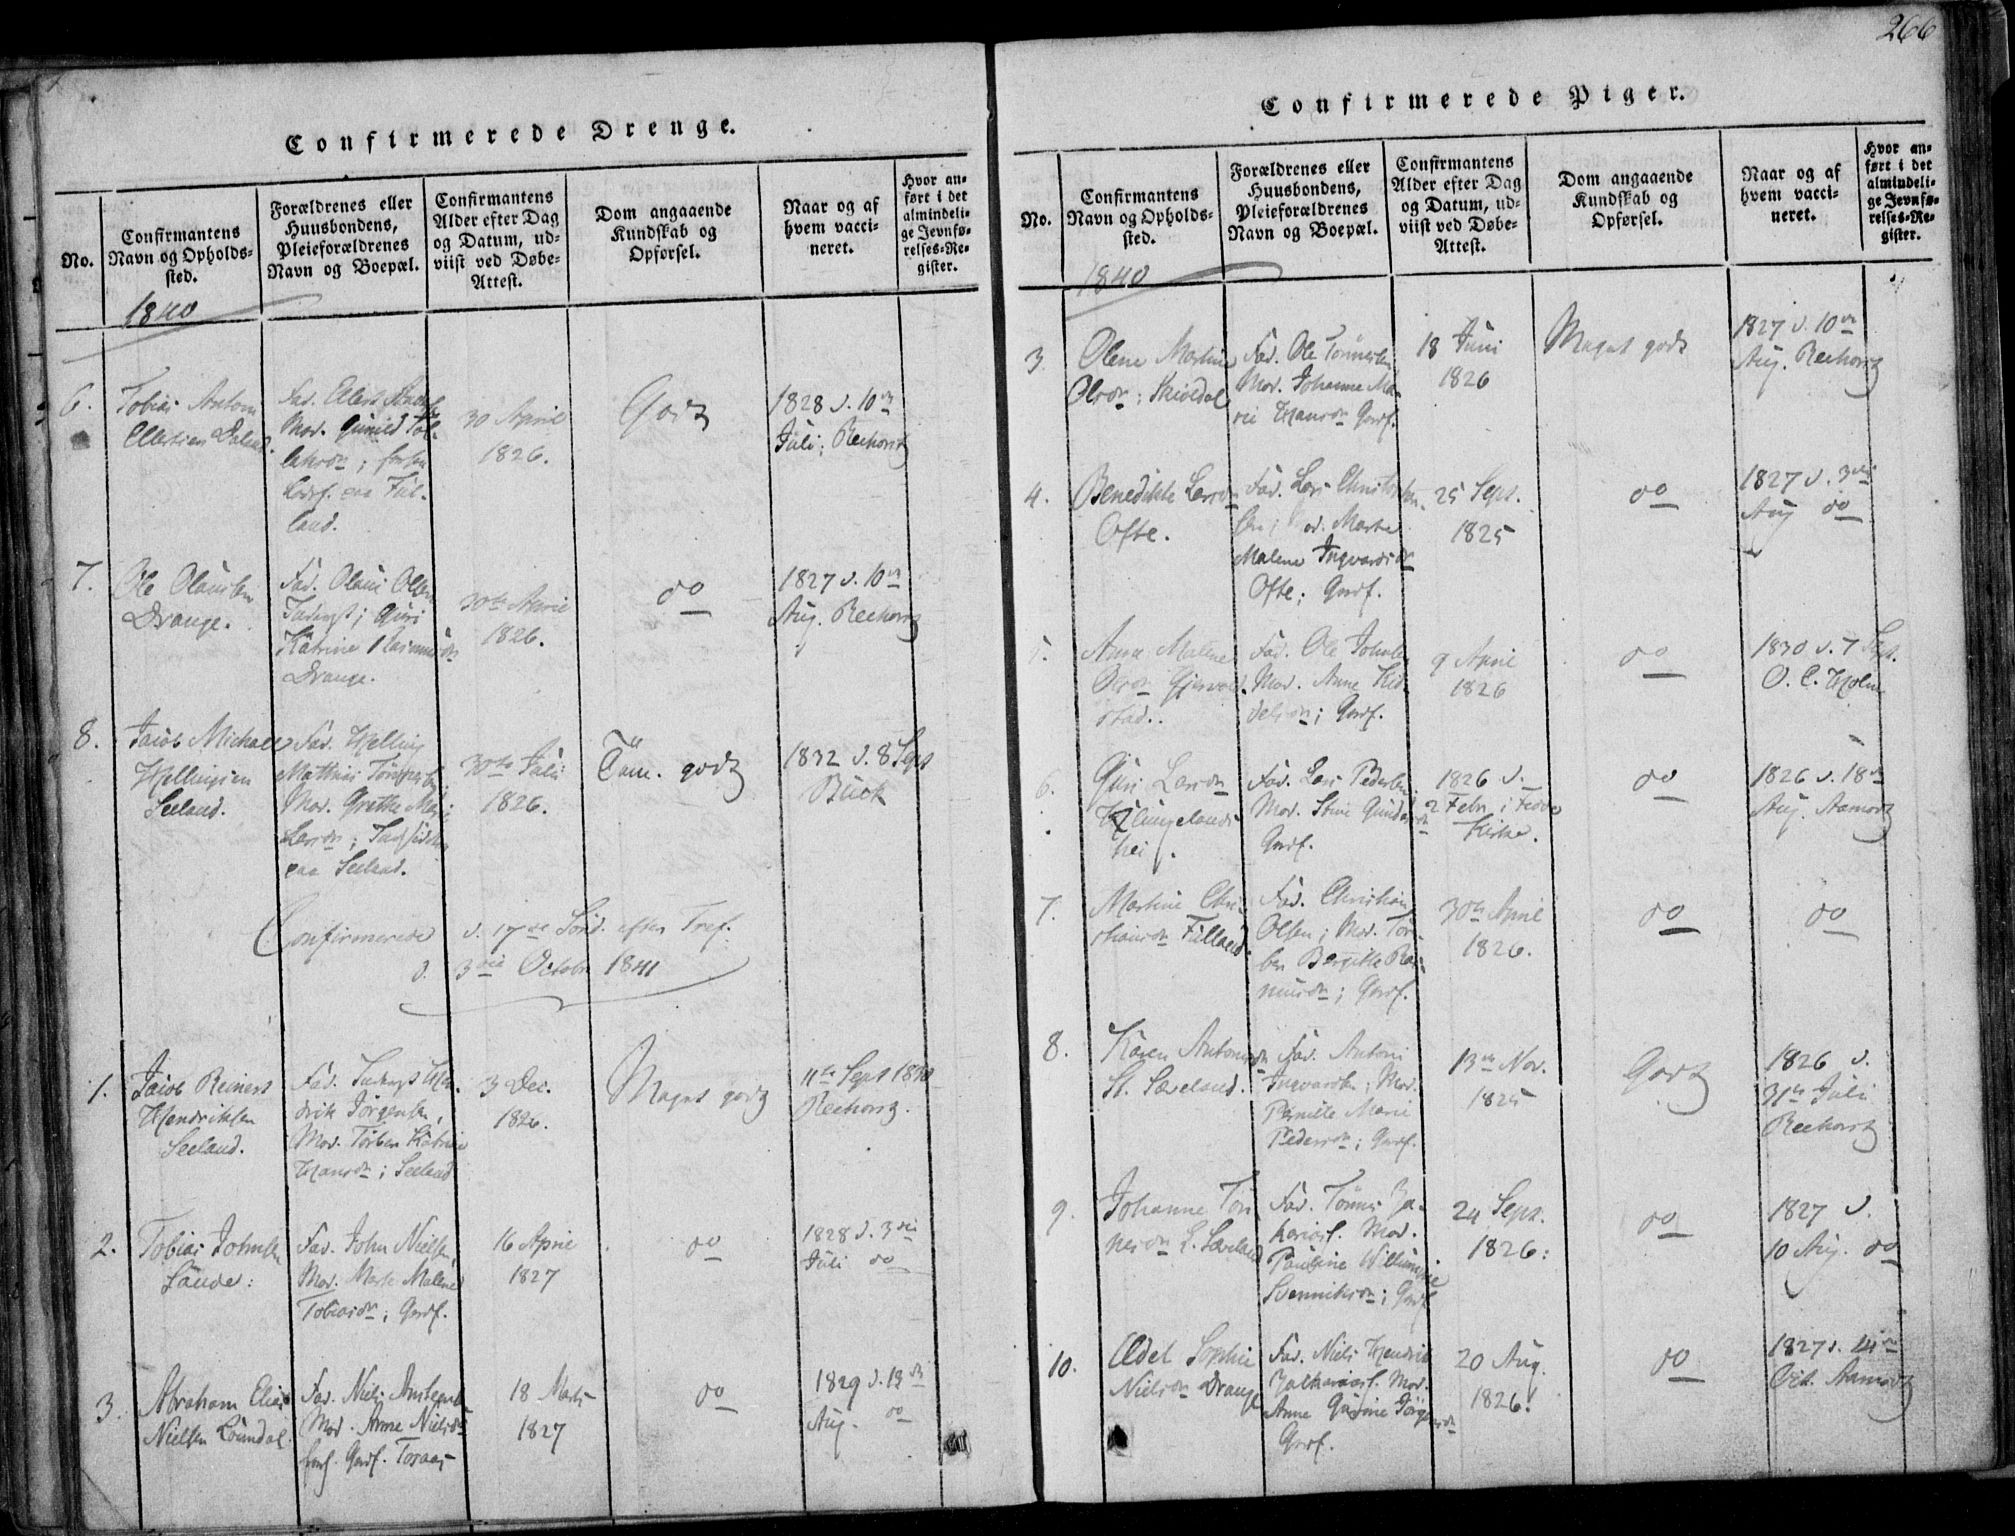 266
Confirmerede Drenge.
No.
Confirmantens
Navn og Opholds-
sted.
Forældrenes eller
Huusbondens,
Pleieforældrenes
Navn og Boepæl.
Confirmantens
Alder efter Dag
og Datum, ud-
viist ved Døbe-
Attest.
Dom angaaende
Kundskab og
Opførsel.
Naar og af
hvem vacci-
neret.
Hvor an-
ført i det
almindeli-
ge Jevnfø-
relses-Re-
gister.
1840
6.
Tobias Anton
Dalend.
Fad.
Mod. Gunild Tol-
paa Ful-
land.
30 April
1826.
Godt
1828 d. 10de
Juli; Reehorst
7.
Ole Olausen
Drange.
Fad. Olaus Olsen
Guri
Katrine Rasmusdn
Drange.
30te April
1826.
do
1827 d. 10de
Aug. Reehorst
8.
Jacob Michael
Hellingsen
Seeland.
Fad. Helling
Mathias Tønnesen
Mod. Grethe
Larsdn;
paa Seeland.
30te Juli
1826.
Tem. godt
1832 d. 8 Sept
Buck
Confirmerede d. 17de Sønd. efter Tref.
d. 3die Octobr 1841
1.
Jacob Reinert
Hendriksen
Seeland.
Fad. Hen-
drik Jørgensen,
Mod. Torber Katrine
Hansdn; Seeland
3 Dec.
1826.
Meget godt
11te Sept 1840
Reehorst.
2.
Tobias Johnsen
Laude:
Fad. John Nielsen
Mod. Marte Malene
Tobiasdn; Gmdf.
16 April
1827
do
1828 d. 3die
Juli do
3.
Abraham Elias
Nielsen Loindal.
Fad. Niels
Mod. Anne Nielsdn
Gmdf.
18 Marts
1827
do
1829 d. 13de
Aug. do
Confirmerede Piger.
No.
Confirmantens
Navn og Opholds-
sted.
Forældrenes eller
Huusbondens,
Pleieforældrenes
Navn og Boepæl.
Confirmantens
Alder efter Dag
og Datum, ud-
viist ved Døbe-
Attest.
Dom angaaende
Kundskab og
Opførsel.
Naar og af
hvem vacci-
neret.
Hvor an-
ført i det
almindeli-
ge Jevnfø-
relses-Re-
gister.
1840
3.
Olene Martine
Olsdn; Skioldal
Fad. Ole Tønnesen
Mod. Johanne Ma-
rie Hansdn Gmdf.
18 Juni
1826
Meget godt
1827 d. 10de
Aug. Reehorst
4.
Benedikte Larsdn
Ofte.
Fad. Lars Christen-
sen; Mod. Marte
Malene Ingvarsdn
Ofte; Gmdf.
25 Sept.
1825
do
1827 d. 3die
Aug do
5.
Anne Malene
Olsdn Gjervold-
stad.
Fad. Ole Johnsen
Mod. Anne Kid-
delsdn; Gmdf.
9 April
1826
do
1830 d. 7 Sept.
O. C. Holm
6.
Guri Larsdn
Klungelands
hei.
Fad. Lars Pedersen
Mod. Stine Gundersdn
Gmdf.
1826 d.
2 Febr. i Fedde
Kirke.
do
1826 d. 18de
Aug. Aamodt
7.
Martine Chri-
stiansdn Fulland
Fad. Christian
Olsen; Mod. Tor-
ber Bergitte Ras-
musdn; Gmdf.
30te April
1826.
do
do
8.
Karen Antonsdn
St. Sæveland.
Fad. Anton
Ingvarsen; Mod.
Pernille Marie
Pedersdn; Gmdf.
13de Nov.
1825
Godt
1826 d.
31te Juli
Reehorst
9.
Johanne Tøn-
nesdn L. Sæveland
Fad. Tønnes Za-
kariasf. Mod.
Pauline Willumine
Bennikdn; Gmdf
24 Sept.
1826:
do
1827 d.
10 Aug. do
10.
Edel Sophie
Nielsdn Drange
Fad. Niels Hendrik
Zakariasf. Mod.
Anne Gurine Jørgensdn
Gmdf.
20 Aug.
1826.
do
1827 d. 14de
Oct. Aamodt